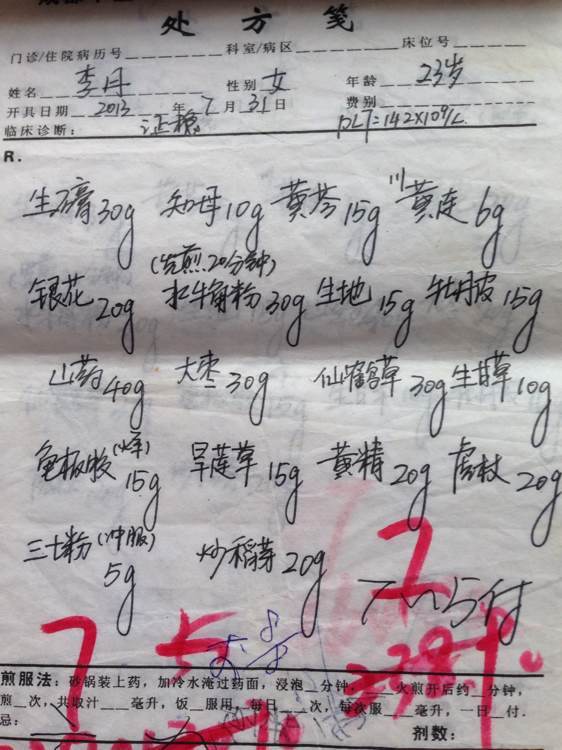 处方笺
门诊/住院病历号 科室/病区 床位号
姓名 李丹 性别 女 年龄 23岁
开具日期 2013 年 7 月 31 日 费别
临床诊断: PLT=142×10⁹/L
R.
生石膏30g 知母10g 黄芩15g 川黄连6g
银花20g (先煎20分钟)水牛角粉30g 生地15g 牡丹皮15g
山药40g 大枣30g 仙鹤草30g 生甘草10g
龟板胶(烊)15g 旱莲草15g 黄精20g 虎杖20g
三七粉(冲服)5g 炒稻芽20g
5付
煎服法:砂锅装上药,加冷水淹过药面,浸泡__分钟,___火煎开后约__分钟,
煎__次,共取汁___毫升,饭__服用,每日___次,每次服___毫升,一日__付.
忌: 剂数: